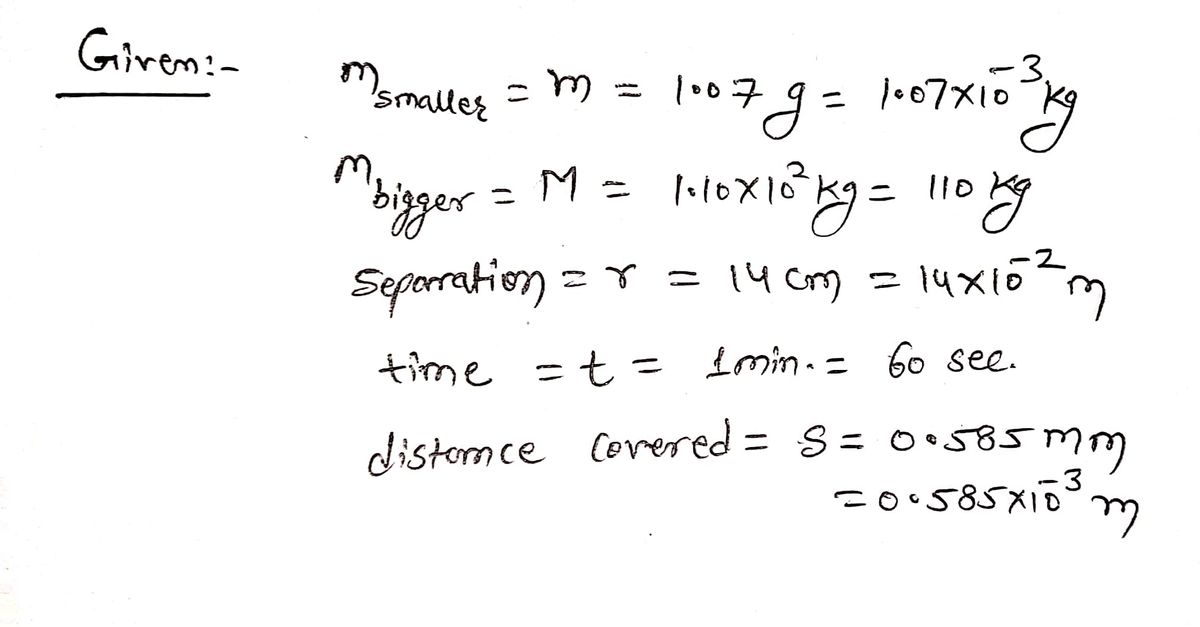 Given:-
m smaller = m = 1.07 g = 1.07×10⁻³ kg
m bigger = M = 1.10×10² kg = 110 kg
Separation = r = 14 cm = 14×10⁻² m
time = t = 1 min. = 60 sec.
distance covered = S = 0.585 mm
= 0.585×10⁻³ m